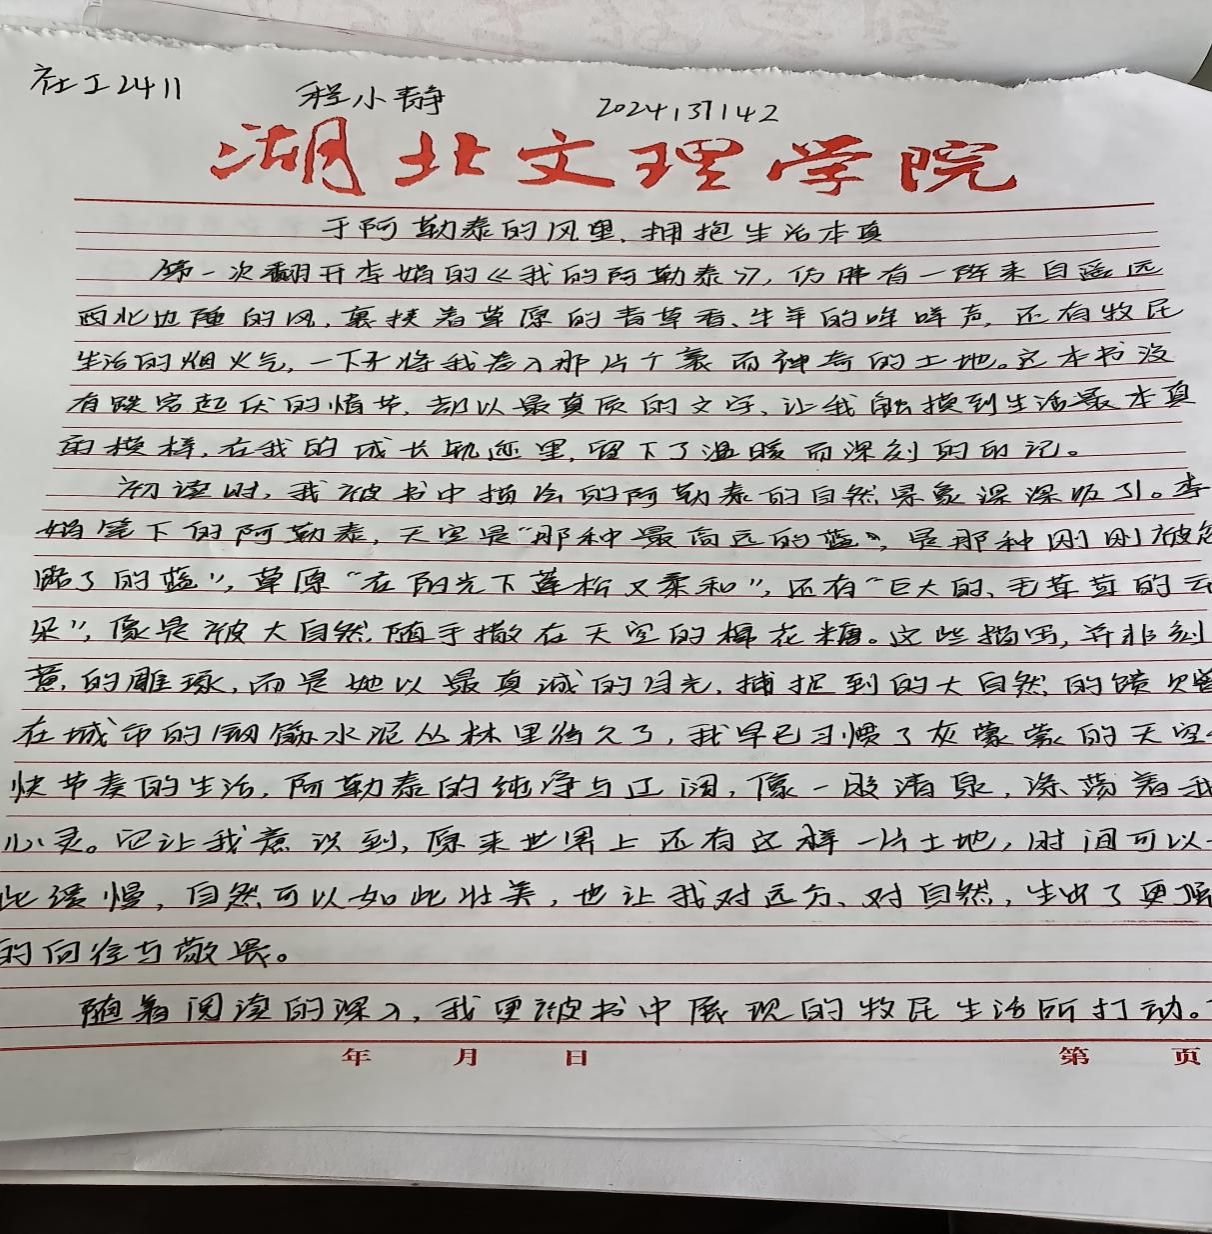 社工2411 程小静 2024131142
湖北文理学院
于阿勒泰的风里,拥抱生活本真
第一次翻开李娟的《我的阿勒泰》,仿佛有一阵来自遥远
西北边陲的风,裹挟着草原的青草香、牛羊的哞咩声,还有牧民
生活的烟火气,一下子将我卷入那片广袤而神奇的土地。这本书没
有跌宕起伏的情节,却以最真质的文字,让我触摸到生活最本真
的模样,在我的成长轨迹里,留下了温暖而深刻的印记。
初读时,我被书中描绘的阿勒泰的自然景象深深吸引。李
娟笔下的阿勒泰,天空是“那种最高远的蓝”,是那种刚刚被
踏了的蓝”,草原“在阳光下蓬松又柔和”,还有“巨大的、毛茸茸的云
朵”,像是被大自然随手撒在天空的棉花糖。这些描写,并非刻
意的雕琢,而是她以最真诚的目光,捕捉到的大自然的馈
在城市的钢筋水泥丛林里待久了,我早已习惯了灰蒙蒙的天空
快节奏的生活,阿勒泰的纯净与辽阔,像一股清泉,涤荡着我
心灵。它让我意识到,原来世界上还有这样一片土地,时间可以
此缓慢,自然可以如此壮美,也让我对远方、对自然,生出了更
的向往与敬畏。
随着阅读的深入,我更被书中展现的牧民生活所打动。
年 月 日 第 页